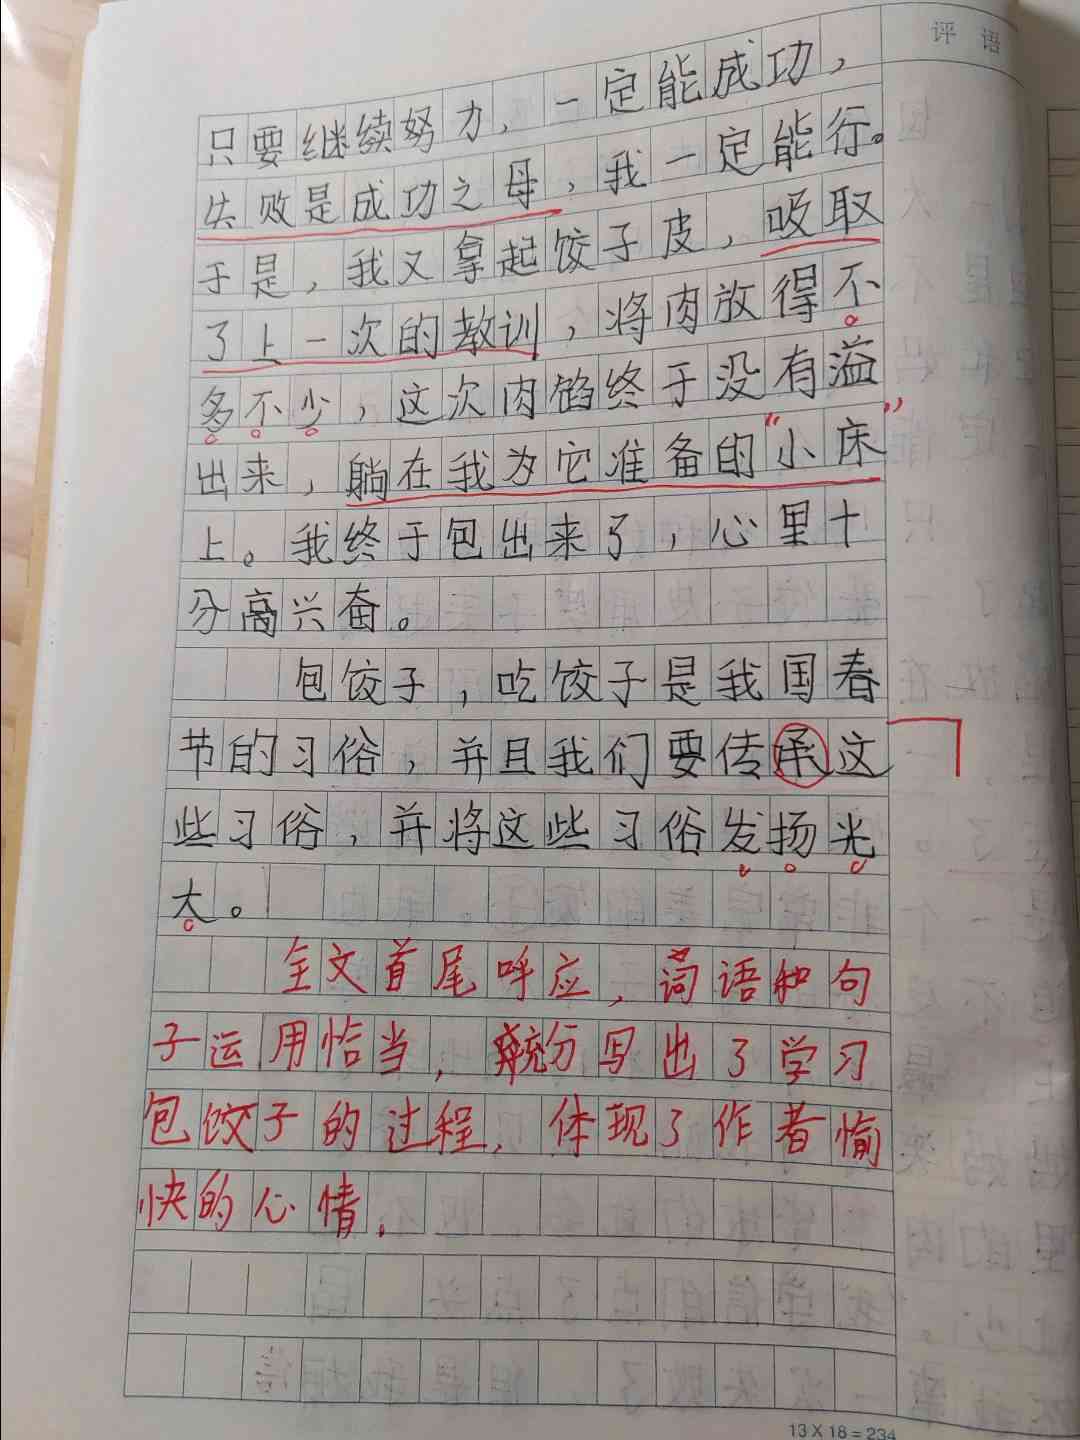 评语
只要继续努力，一定能成功，
失败是成功之母，我一定能行。
于是，我又拿起饺子皮，吸取
了上一次的教训，将肉放得不
多不少，这次肉馅终于没有溢
出来，躺在我为它准备的“小床”
上。我终于包出来了，心里十
分高兴奋。
包饺子，吃饺子是我国春
节的习俗，并且我们要传承这
些习俗，并将这些习俗发扬光
大。
全文首尾呼应，词语和句
子运用恰当，充分写出了学习
包饺子的过程，体现了作者愉
快的心情。
13×18=234